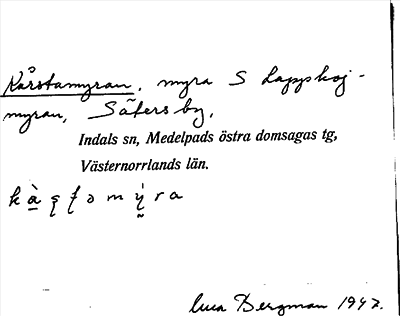 Kårstamyran, myra S Lappskoj-
myran, Sätersby,
Indals sn, Medelpads östra domsagas tg,
Västernorrlands län.
Bergman 1947.